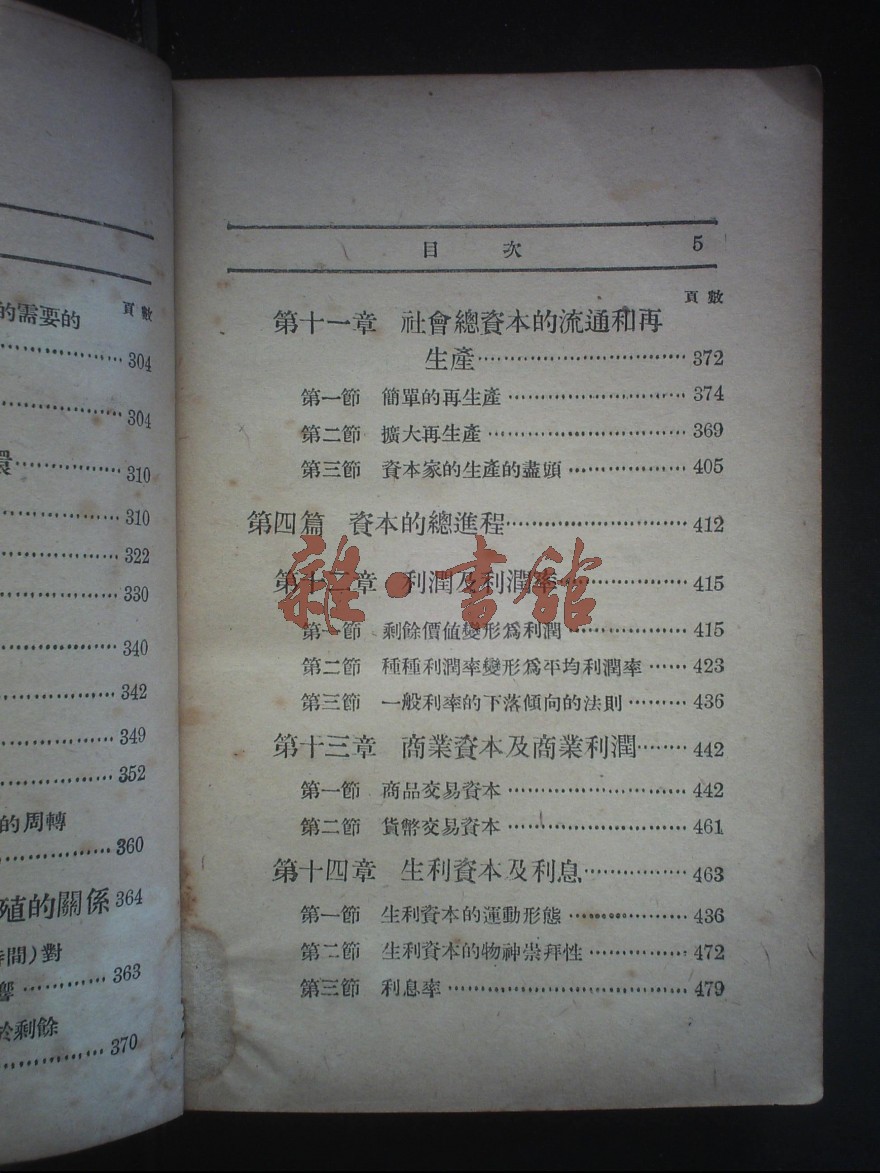 的需要的 頁數
304
304
環 310
310
322
330
340
342
349
352
的周轉
360
殖的關係 364
時間)對
響 363
於剩餘
370
目 次 5
頁數
第十一章 社會總資本的流通和再
生產 372
第一節 簡單的再生產 374
第二節 擴大再生產 369
第三節 資本家的生產的盡頭 405
第四篇 資本的總進程 412
第十二章 利潤及利潤率 415
第一節 剩餘價値變形爲利潤 415
第二節 種種利潤率變形爲平均利潤率 423
第三節 一般利率的下落傾向的法則 436
第十三章 商業資本及商業利潤 442
第一節 商品交易資本 442
第二節 貨幣交易資本 461
第十四章 生利資本及利息 463
第一節 生利資本的運動形態 436
第二節 生利資本的物神崇拜性 472
第三節 利息率 479
雜·書館